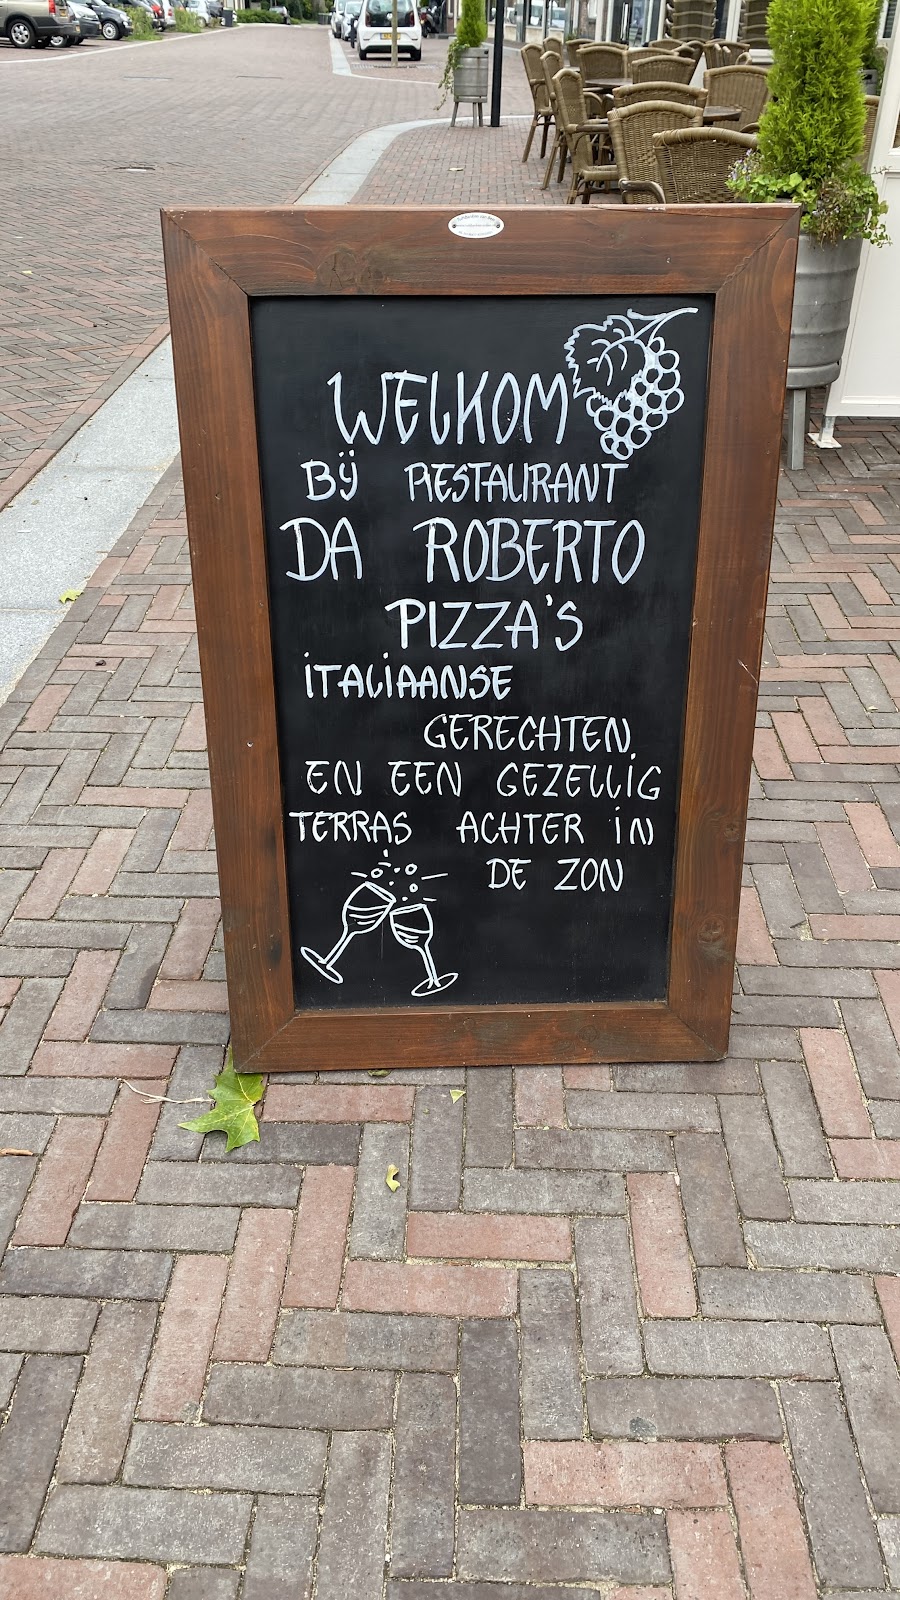 WELKOM
BIJ RESTAURANT
DA ROBERTO
PIZZA'S
ITALIAANSE
GERECHTEN
EN EEN GEZELLIG
TERRAS ACHTER IN
DE ZON